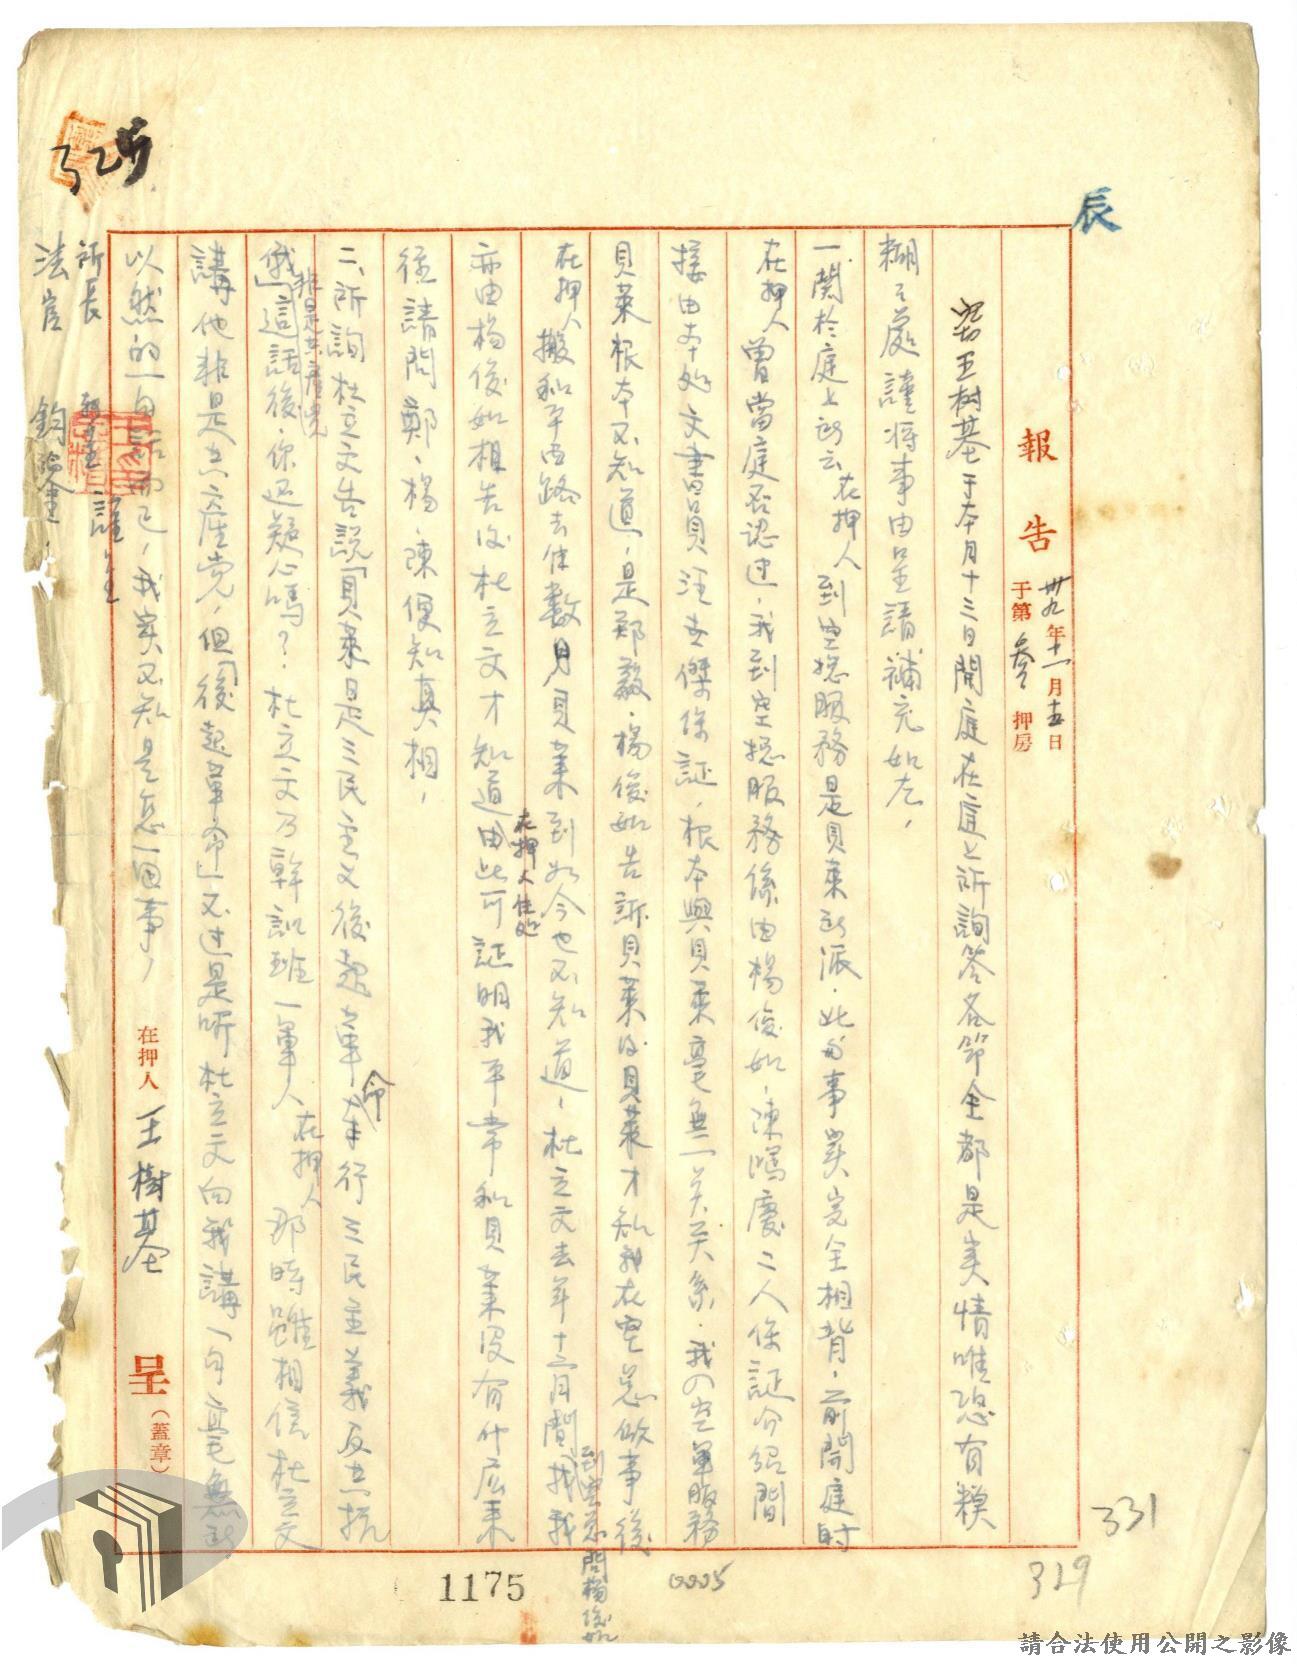 辰
報告 卅九年十一月十五日
于第參押房
竊王樹基于本月十三日開庭在庭上所詢答各節全都是实情唯恐有糢
糊之處謹将事由呈請補充如左，
一、関於庭上所云在押人到空總服務是貝萊所派，此與事实完全相背，前開庭時
在押人曾當庭否認过，我到空總服務係由楊俊如，陳鴻慶二人保証介紹間
接由本处文書員汪世傑保証，根本與貝萊毫無一关关系，我の空軍服務
貝萊根本不知道，是鄭毅，楊俊如告訴貝萊後貝萊才知我在空总做事後
在押人搬和平西路去住數月貝萊到如今也不知道，杜立文去年十二月間找我到空总問楊俊如
亦由楊俊如相告後杜立文才知道在押人住処由此可証明我平常和貝萊没有什庅来
往請問鄭，楊，陳便知真相，
二、所詢杜立文告說「貝萊是三民主义後起革命奉行三民主義反共抗
俄」這話後非是共產党，你还疑心嗎？杜立文乃幹訓班一軍人在押人那時雖相信杜立文
講他非是共產党，但「後起革命」不过是听杜立文向我講一句毫無所
以然的一句話而已，我实不知是怎一回事，
在押人 王樹基 呈（蓋章）
所長 轉呈 謹呈
法官 鈞鑒，
325
331
329
0005
1175
請合法使用公開之影像